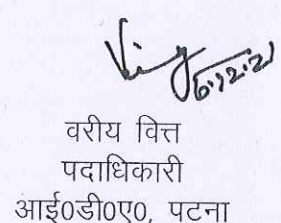 6.12.21
वरीय वित्त
पदाधिकारी
आई०डी०ए०, पटना